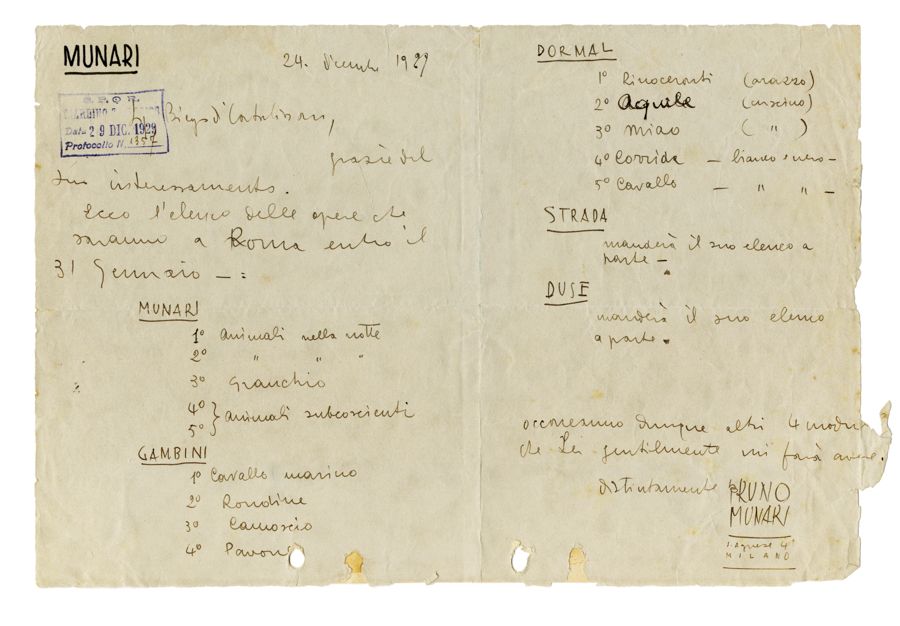 MUNARI
24. dicembre 1929
S. P. Q. R.
Data 29 DIC. 1929
Protocollo N. 1357
grazie del
suo interessamento.
Ecco l'elenco delle opere che
saranno a Roma entro il
31 Gennaio — :
MUNARI
1º animali nella notte
2º " " "
3º Granchio
4º } animali subcoscienti
5º
GAMBINI
1º Cavallo marino
2º Rondine
3º Camoscio
4º Pavone
DORMAL
1º Rinoceronti (arazzo)
2º Aquile (cuscino)
3º Miao ( " )
4º Corrida — bianco e nero —
5º Cavallo — " " —
STRADA
manderà il suo elenco a
parte —
DUSE
manderà il suo elenco
a parte.
occorreranno dunque altri 4 moduli
che Lei gentilmente mi farà avere.
distintamente
BRUNO
MUNARI
S. Agnese 4
MILANO